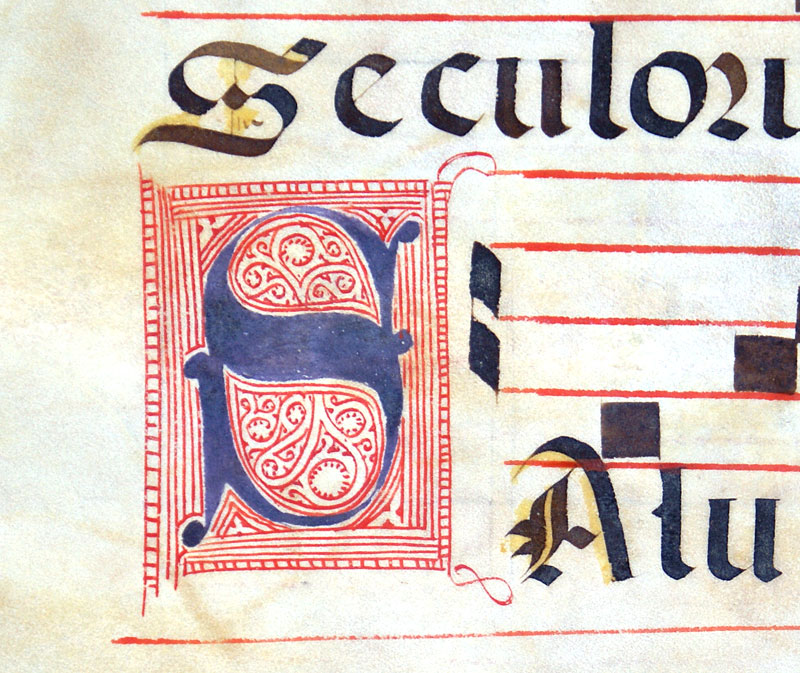 Seculoru
SAlu